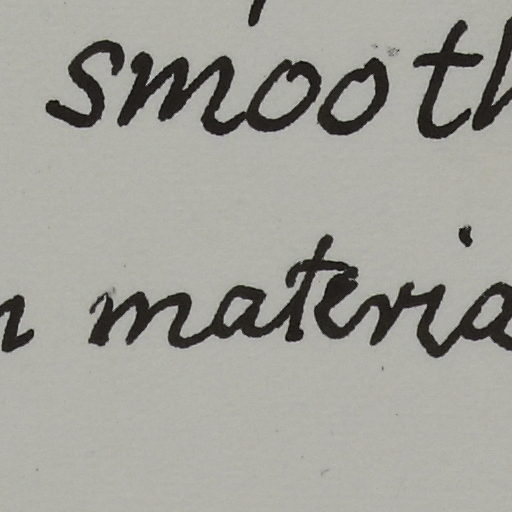 smooth
n materia